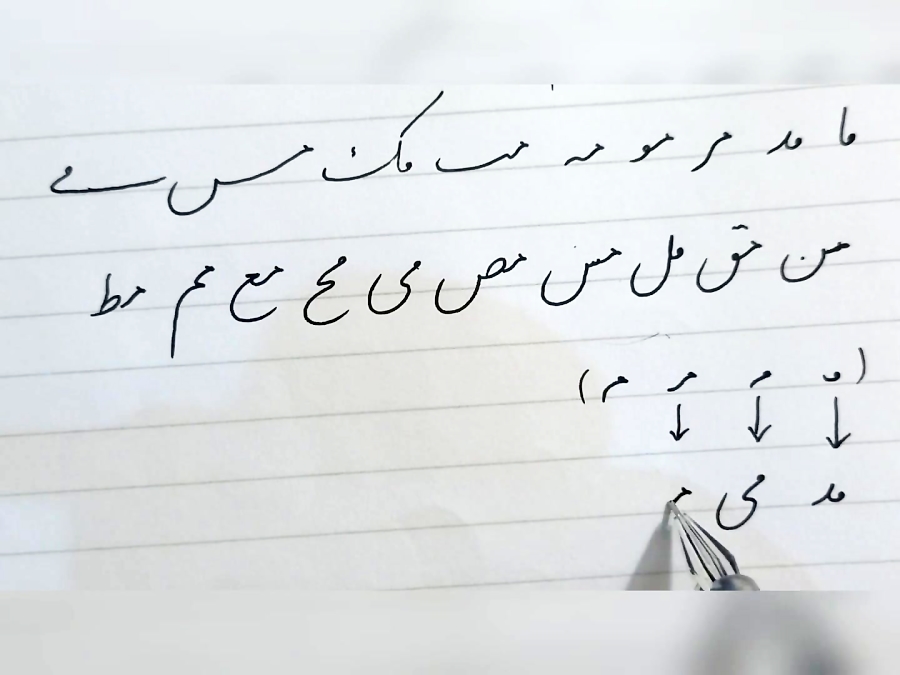 ما مد مر مو مہ مٮ مک مس مے
من مق مل مس مص می مح مع مم مط
(مـ مـ مـ مـ)
مد می مـ